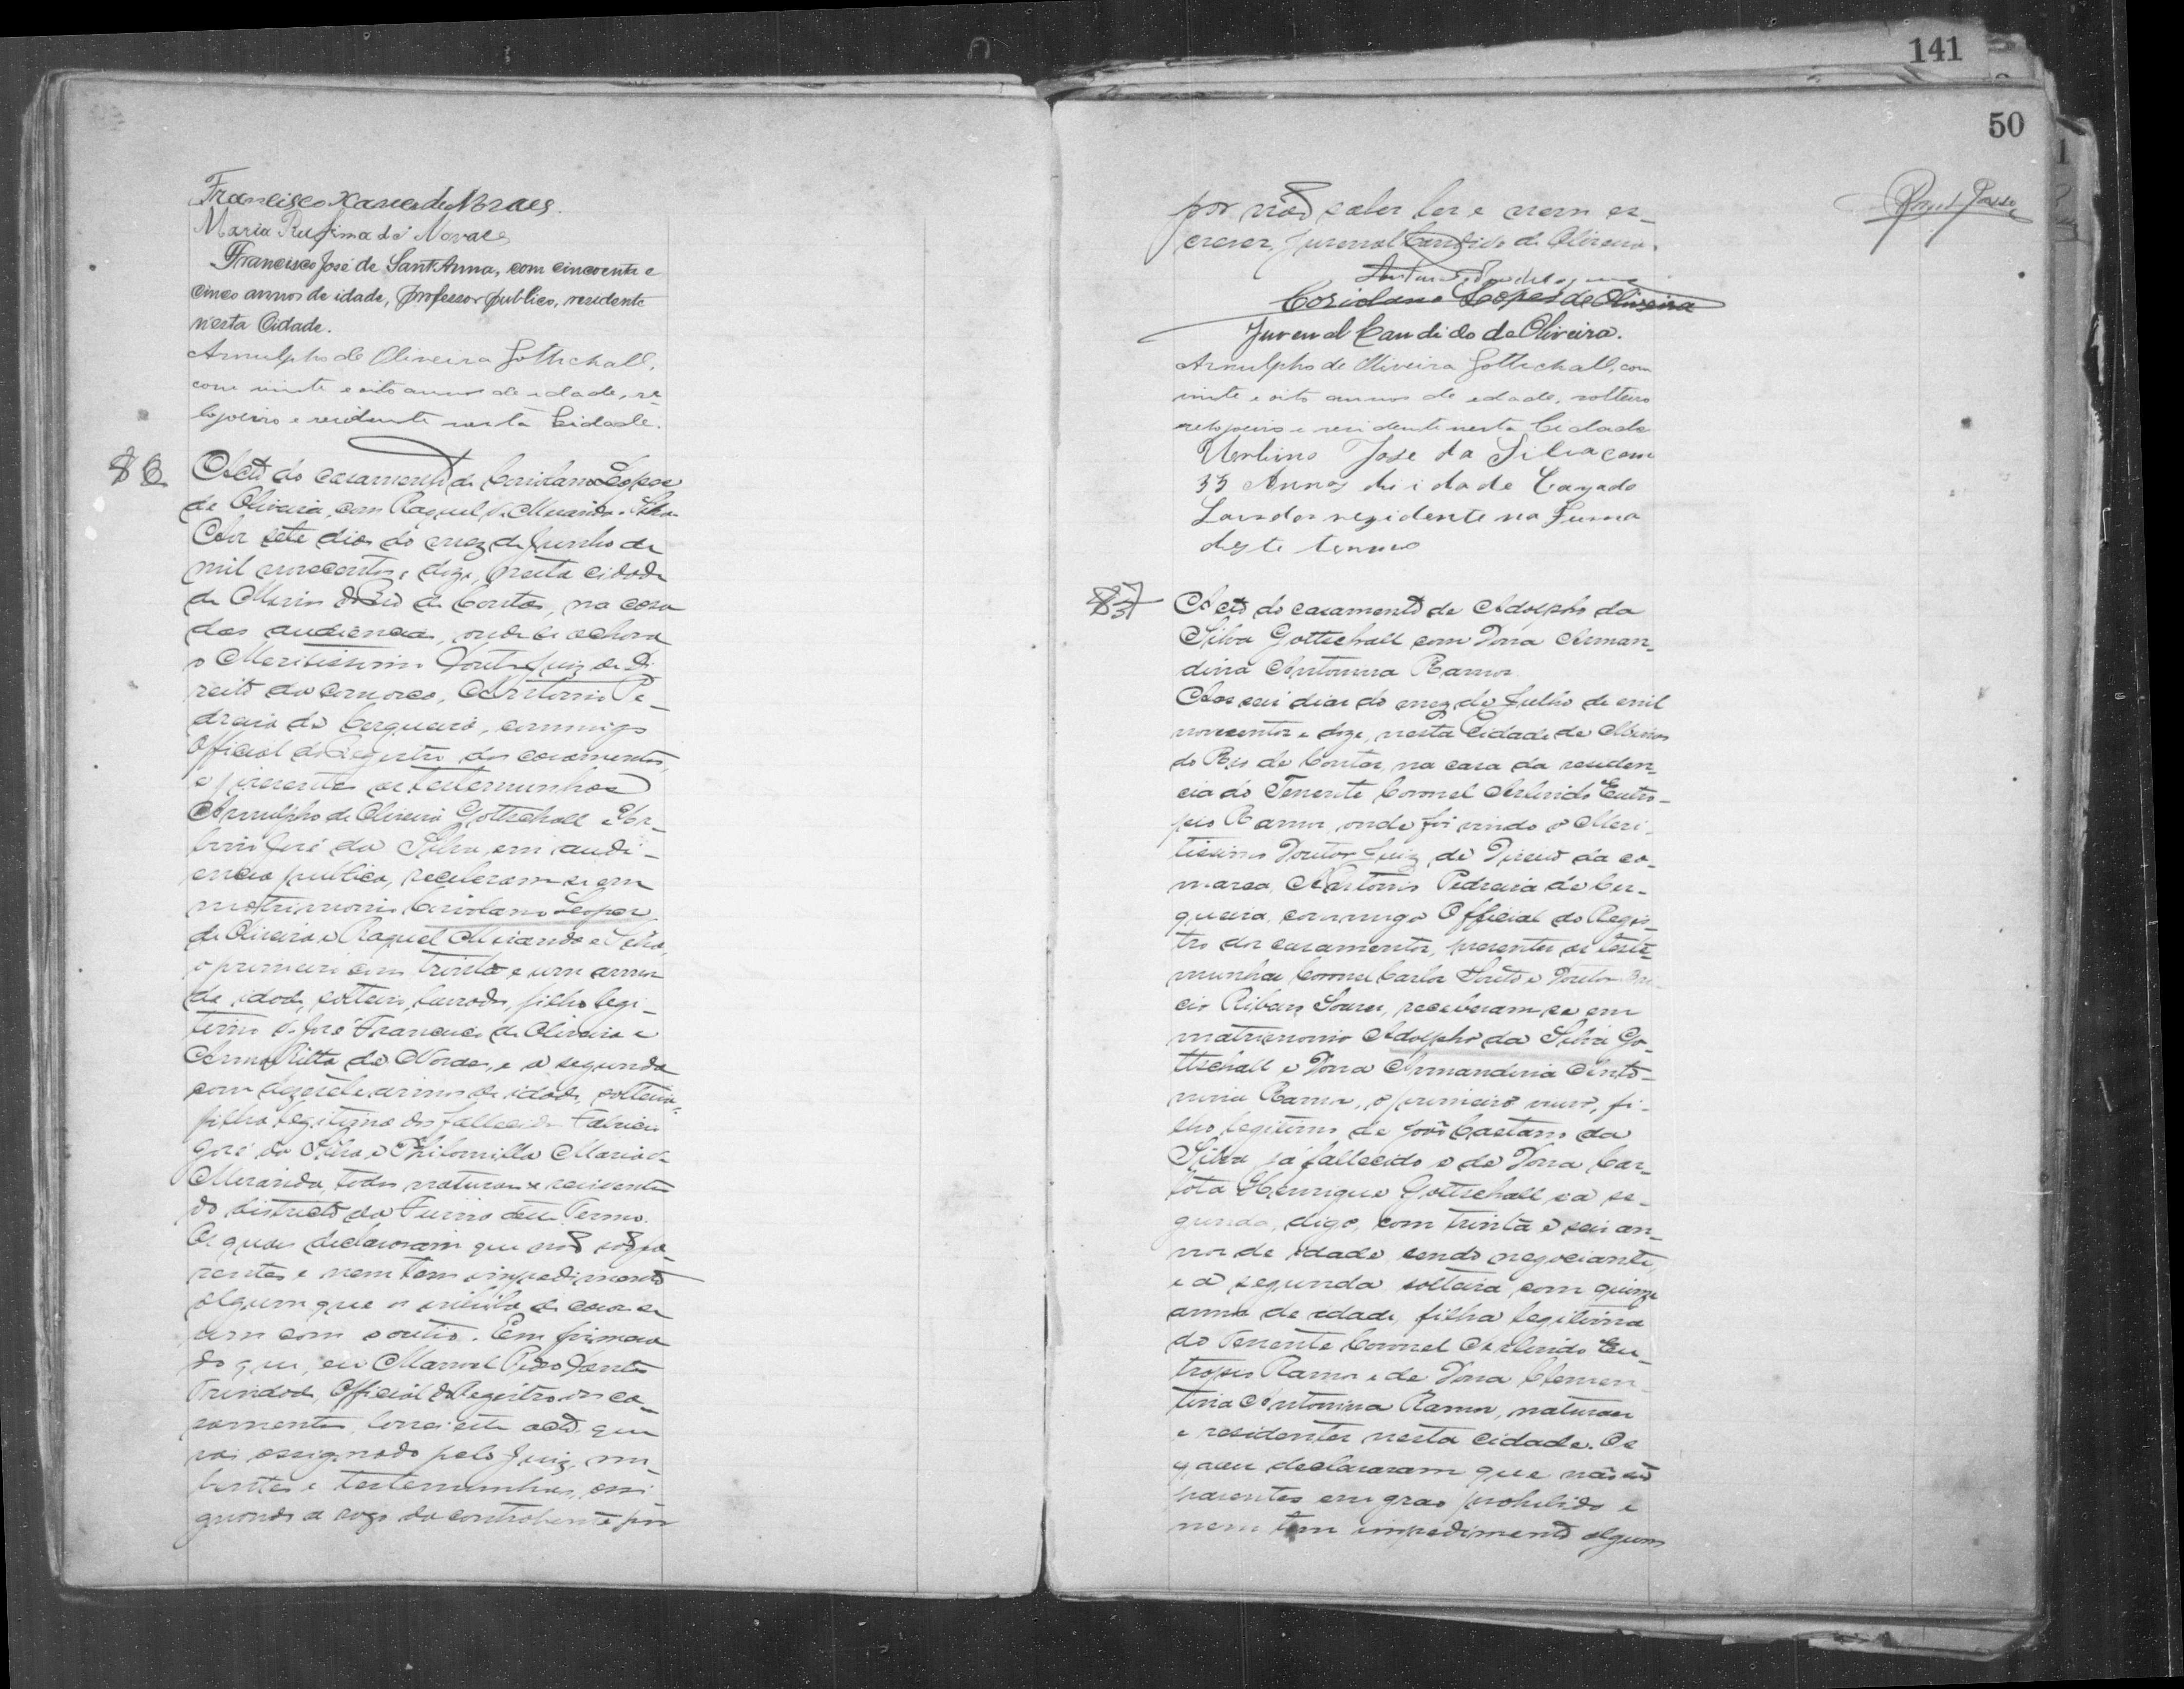 141
50
Francisco Xavier de Moraes.
Maria Rufina de Novaes
Francisco José de Sant'Anna, com cincoenta e
cinco annos de idade, professor publico, residente
nesta Cidade.
Arnulpho de Oliveira Gottschall,
com vinte e oito annos de edade, re-
lojoeiro e residente nesta Cidade.
Acto do casamento de Coriolano Lopes
de Oliveira, com Raquel de Miranda e Silva
Aos sete dias do mez de Junho de
mil novecentos e doze, nesta cidade
de Minas do Rio de Contas, na casa
das audiencias, onde se achava
o Meritissimo Doutor Juiz de Di-
reito da comarca, Antonio Pe-
dreira de Cerqueira, commigo
Official do Registro dos casamentos,
e presentes as testemunhas
Arnulpho de Oliveira Gottschall e Ur-
bino José da Silva, em audi-
encia publica, receberam-se em
matrimonio Coriolano Lopes
de Oliveira e Raquel Miranda e Silva,
o primeiro com trinta e um annos
de idade, solteiro, lavrador, filho legi-
timo de José Francisco de Oliveira e
Anna Ritta de Novaes, e a segunda
com dezesete annos de idade, solteira,
filha legitima dos fallecidos Fabricio
José da Silva e Philomilla Maria de
Miranda, todos naturaes e residentes
do districto da Furna deste Termo.
Os quaes declararam que não são pa-
rentes e nem tem impedimento
algum que os inhiba de casar-se
um com o outro. Em firmeza
do que, eu Manoel Pedro Dantas
Trindade, Official do Registro dos ca-
samentos, lavrei este acto que
vai assignado pelo Juiz, nu-
bentes e testemunhas, assi-
gnando a rogo da contrahente por
por não saber ler e nem es-
crever, Juvenal Candido de Oliveira.
Coriolano Lopes de Oliveira
Juvenal Candido de Oliveira.
Arnulpho de Oliveira Gottschall, com
vinte e oito annos de edade, solteiro
relojoeiro e residente nesta Cidade
Urbino José da Silva com
33 Annos de idade Cazado
Lavrador rezidente na Furna
deste termo
87
Acto do casamento de Adolpho da
Silva Gottschall com Dona Arman-
dina Antonina Ramos
Aos seis dias do mez de Julho de mil
novecentos e doze, nesta Cidade de Minas
do Rio de Contas, na casa da residen-
cia do Tenente Coronel Arlindo Eutro-
pio Ramos, onde foi vindo o Meri-
tissimo Doutor Juiz de Direito da co-
marca, Antonio Pedreira de Cer-
queira, commigo Official do Regis-
tro dos casamentos, presentes as teste-
munhas Coronel Carlos Souto e Doutor
Ribeiro Soares, receberam-se em
matrimonio Adolpho da Silva Go-
ttschall e Dona Armandina Anto-
nina Ramos, o primeiro viuvo, fi-
lho legitimo de João Caetano da
Silva já fallecido e de Dona Car-
lota Henrique Gottschall, e a se-
gunda, digo, com trinta e seis an-
nos de idade, sendo negociante,
e a segunda solteira com quinze
annos de edade, filha legitima
do Tenente Coronel Arlindo Eu-
tropio Ramos e de Dona Clemen-
tina Antonina Ramos, naturaes
e residentes nesta cidade. Os
quaes declararam que não são
parentes em grao prohibido e
nem tem impedimento algum